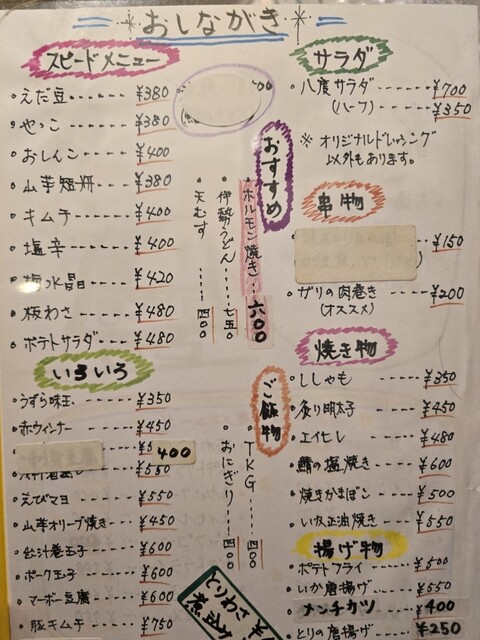 おしながき
スピードメニュー
・えだ豆 ¥380
・やっこ ¥380
・おしんこ ¥400
・山芋短冊 ¥380
・キムチ ¥400
・塩辛 ¥400
・梅水晶 ¥420
・板わさ ¥480
・ポテトサラダ ¥480
いろいろ
・うずら味玉 ¥350
・赤ウィンナー ¥450
400
¥550
・えびマヨ ¥550
・山芋オリーブ焼き ¥450
・出汁巻玉子 ¥600
・ポーク玉子 ¥600
・マーボー豆腐 ¥600
・豚キムチ ¥750
おすすめ
・ホルモン焼き 六00
・伊勢うどん 七五0
・天むす 四00
ご飯物
・TKG 四00
・おにぎり 四00
とりわさ
サラダ
・八度サラダ ¥700
(ハーフ) ¥350
※オリジナルドレッシング
以外もあります。
串物
¥150
・ガリの肉巻き ¥200
(オススメ)
焼き物
・ししゃも ¥350
・炙り明太子 ¥450
・エイヒレ ¥480
・鯖の塩焼き ¥600
・焼きかまぼこ ¥500
・いか正油焼き ¥550
揚げ物
・ポテトフライ ¥500
・いか唐揚げ ¥550
・メンチカツ ¥400
・とりの唐揚げ ¥250